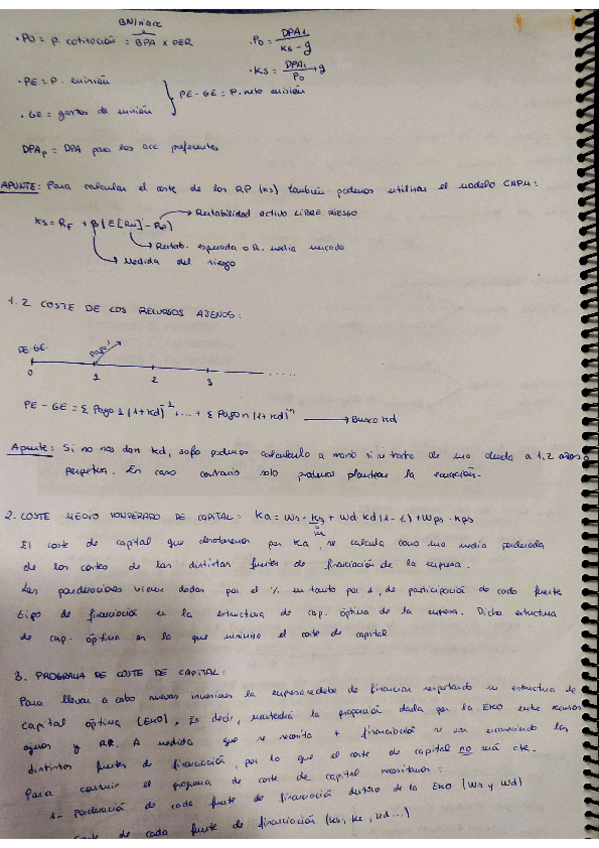 BN/nacc
· P0 = p. cotización = BPA x PER
· P0 = DPA1 / ks - g
· ks = DPA1 / P0 + g
· PE = P. emisión
PE - GE = P. neto emisión
· GE = gastos de emisión
DPAp = DPA para los acc preferentes
APUNTE: Para calcular el coste de los RP (ks) también podemos utilizar el modelo CAPM:
ks = RF + β(E[RM] - RF)
Rentabilidad activo LIBRE RIESGO
Rentab. esperada o R. media mercado
Medida del riesgo
1.2 COSTE DE LOS RECURSOS AJENOS:
PE-GE
Pago 1
0 1 2 3 .....
PE - GE = Σ Pago 1 (1+kd)⁻¹, ... + Σ Pago n (1+kd)⁻ⁿ → Busco kd
Apunte: Si no nos dan kd, solo podemos calcularlo a mano si se trata de una deuda a 1, 2 años o
perpetua. En caso contrario solo podremos plantear la ecuación.
2. COSTE MEDIO PONDERADO DE CAPITAL: ka = Ws · ks + Wd · kd (1 - t) + Wps · kps
ke
El coste de capital que denotaremos por ka, se calcula como una media ponderada
de los costes de las distintas fuentes de financiación de la empresa.
Las ponderaciones vienen dadas por el % en tanto por 1, de participación de cada fuente
tipo de financiación en la estructura de cap. óptima de la empresa. Dicha estructura
de cap. óptima es la que minimiza el coste de capital
3. PROGRAMA DE COSTE DE CAPITAL:
Para llevar a cabo nuevas inversiones la empresa debe de financiar respetando su estructura de
capital óptima (EKO). Es decir, mantendrá la proporción dada por la EKO entre recursos
ajenos y RP. A medida que se necesita + financiación se van encareciendo las
distintas fuentes de financiación, por lo que el coste de capital no será cte.
Para construir el programa de coste de capital necesitamos:
1- ponderación de cada fuente de financiación dentro de la EKO (Ws y Wd)
coste de cada fuente de financiación (ks, ke, kd...)